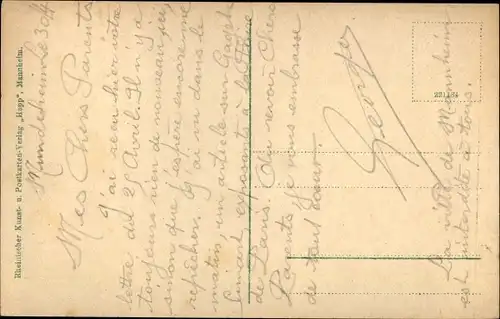 Mundenheim Le 30/4
Mes Chers Parents
J'ai reçu hier votre
lettre du 25 Avril. Il n'y a
toujours rien de nouveau ici,
sinon que j'espère encore me
repêcher. J'ai vu dans le
matin un article sur
exposants à la Foire
de Paris. Au revoir Chers
Parents je vous embrasse
de tout coeur.
Georges
La ville de Mannheim
est interdite à tous.
Rheinischer Kunst- u. Postkarten-Verlag „Hopp", Mannheim.